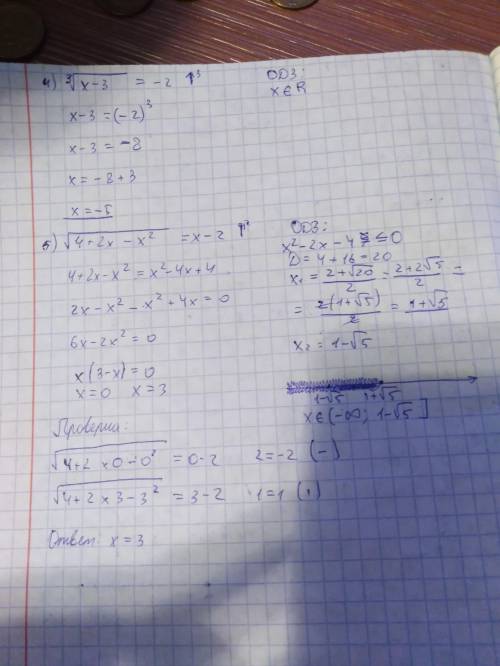 4) ∛(x-3) = -2 ↑³
ОДЗ:
x∈R
x-3 = (-2)³
x-3 = -8
x = -8+3
x = -5
5) √(4+2x-x²) = x-2 ↑²
ОДЗ:
x²-2x-4 ≤ 0
D = 4+16 = 20
4+2x-x² = x²-4x+4
x₁ = (2+√20)/2 = (2+2√5)/2 =
2x-x²-x²+4x = 0
= 2(1+√5)/2 = 1+√5
6x-2x² = 0
x₂ = 1-√5
x(3-x) = 0
x=0 x=3
1-√5 1+√5
x∈(-∞; 1-√5]
Проверка:
√(4+2×0-0²) = 0-2 2=-2 (-)
√(4+2×3-3²) = 3-2 1=1
Ответ: x=3